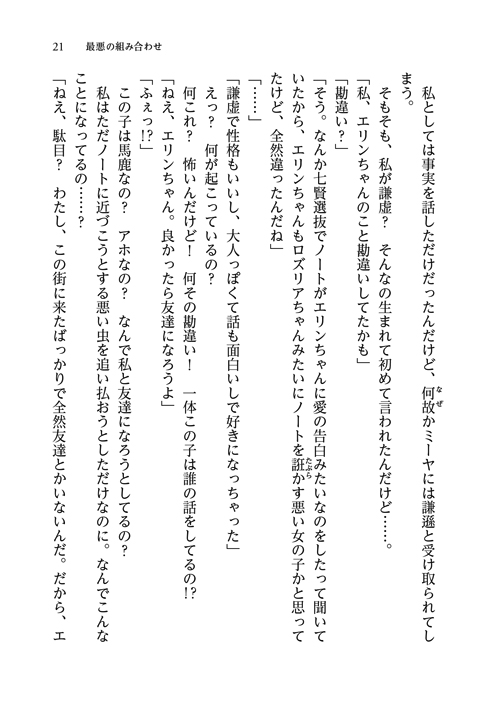 21　最悪の組み合わせ
　私としては事実を話しただけだったんだけど、何故かミーヤには謙遜と受け取られてし
まう。
　そもそも、私が謙虚？　そんなの生まれて初めて言われたんだけど……。
「私、エリンちゃんのこと勘違いしてたかも」
「勘違い？」
「そう。なんか七賢選抜でノートがエリンちゃんに愛の告白みたいなのをしたって聞いて
いたから、エリンちゃんもロズリアちゃんみたいにノートを誑かす悪い女の子かと思って
たけど、全然違ったんだね」
「……」
「謙虚で性格もいいし、大人っぽくて話も面白いしで好きになっちゃった」
　えっ？　何が起こっているの？
　何これ？　怖いんだけど！　何その勘違い！　一体この子は誰の話をしてるの!?
「ねえ、エリンちゃん。良かったら友達になろうよ」
「ふぇっ!?」
　この子は馬鹿なの？　アホなの？　なんで私と友達になろうとしてるの？
　私はただノートに近づこうとする悪い虫を追い払おうとしただけなのに。なんでこんな
ことになってるの……？
「ねえ、駄目？　わたし、この街に来たばっかりで全然友達とかいないんだ。だから、エ